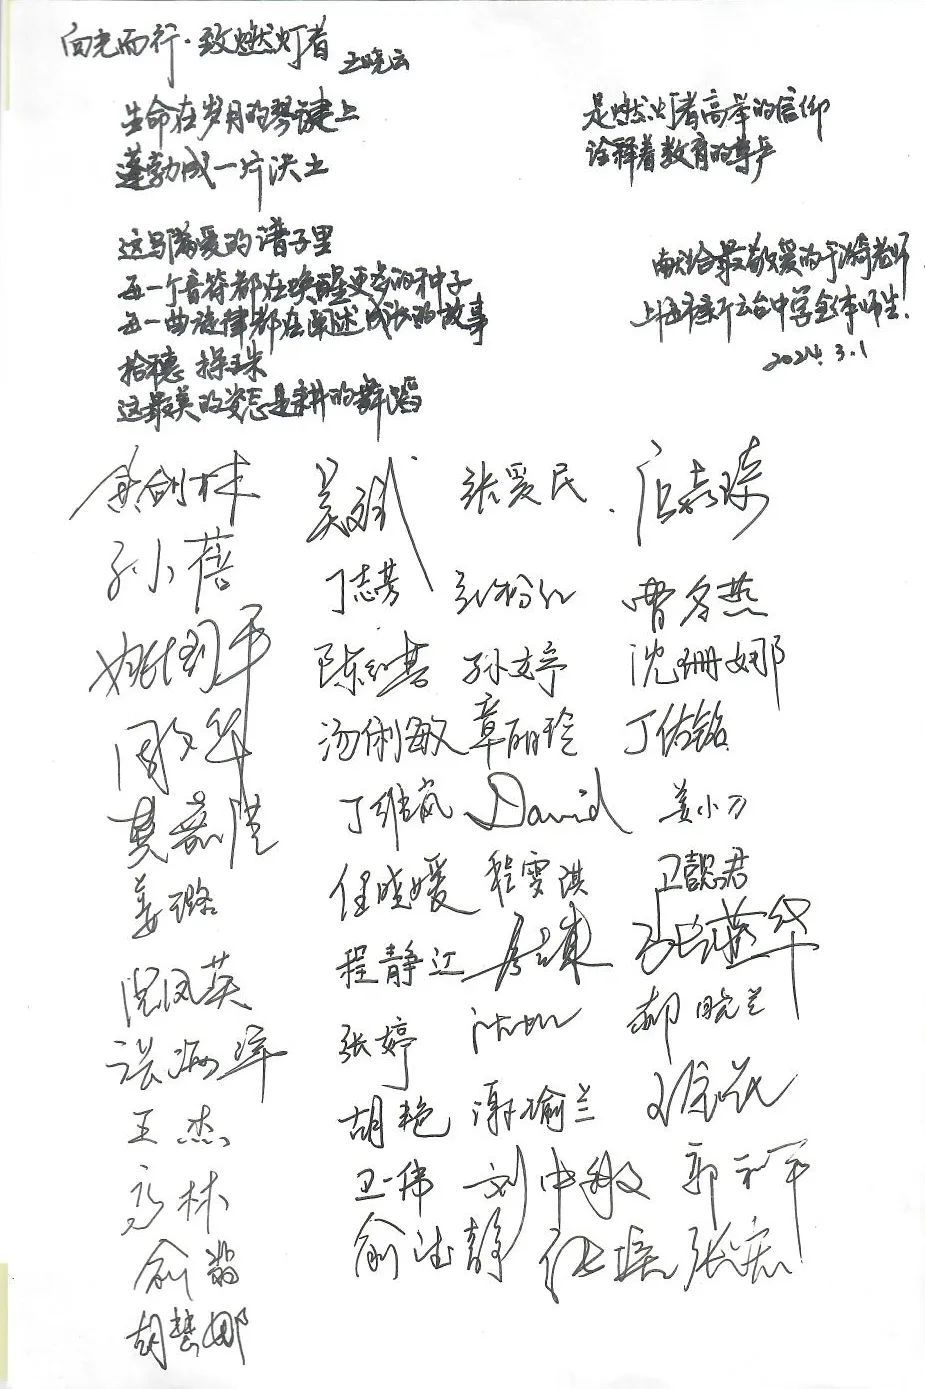 向光而行·致燃灯者
王晓云
生命在岁月的琴键上
蓬勃成一片沃土
这写满爱的谱子里
每一个音符都在唤醒更多的种子
每一曲旋律都在阐述成长的故事
拾穗 探珠
这最美的姿态是耕的舞蹈
是燃灯者高举的信仰
诠释着教育的尊严
献给最敬爱的于漪老师
上海市云台中学全体师生.
2024.3.1
吴斌 张爱民
孙小蓓 丁志芳 曹冬燕
姚国平 陈红茜 孙婷 沈珊娜
周文华 汤俐敏 章丽玲 丁佑铭
莫 丁维岚 David 姜小刀
姜璐 任晓媛 程雯淇 卫懿君
倪凤英 程静江 张燕华
张海萍 张婷 郝晓兰
王杰 胡艳 谢瑜兰
高林 卫伟 刘中敏 郭和平
俞 俞洁静 张宏
胡慧娜